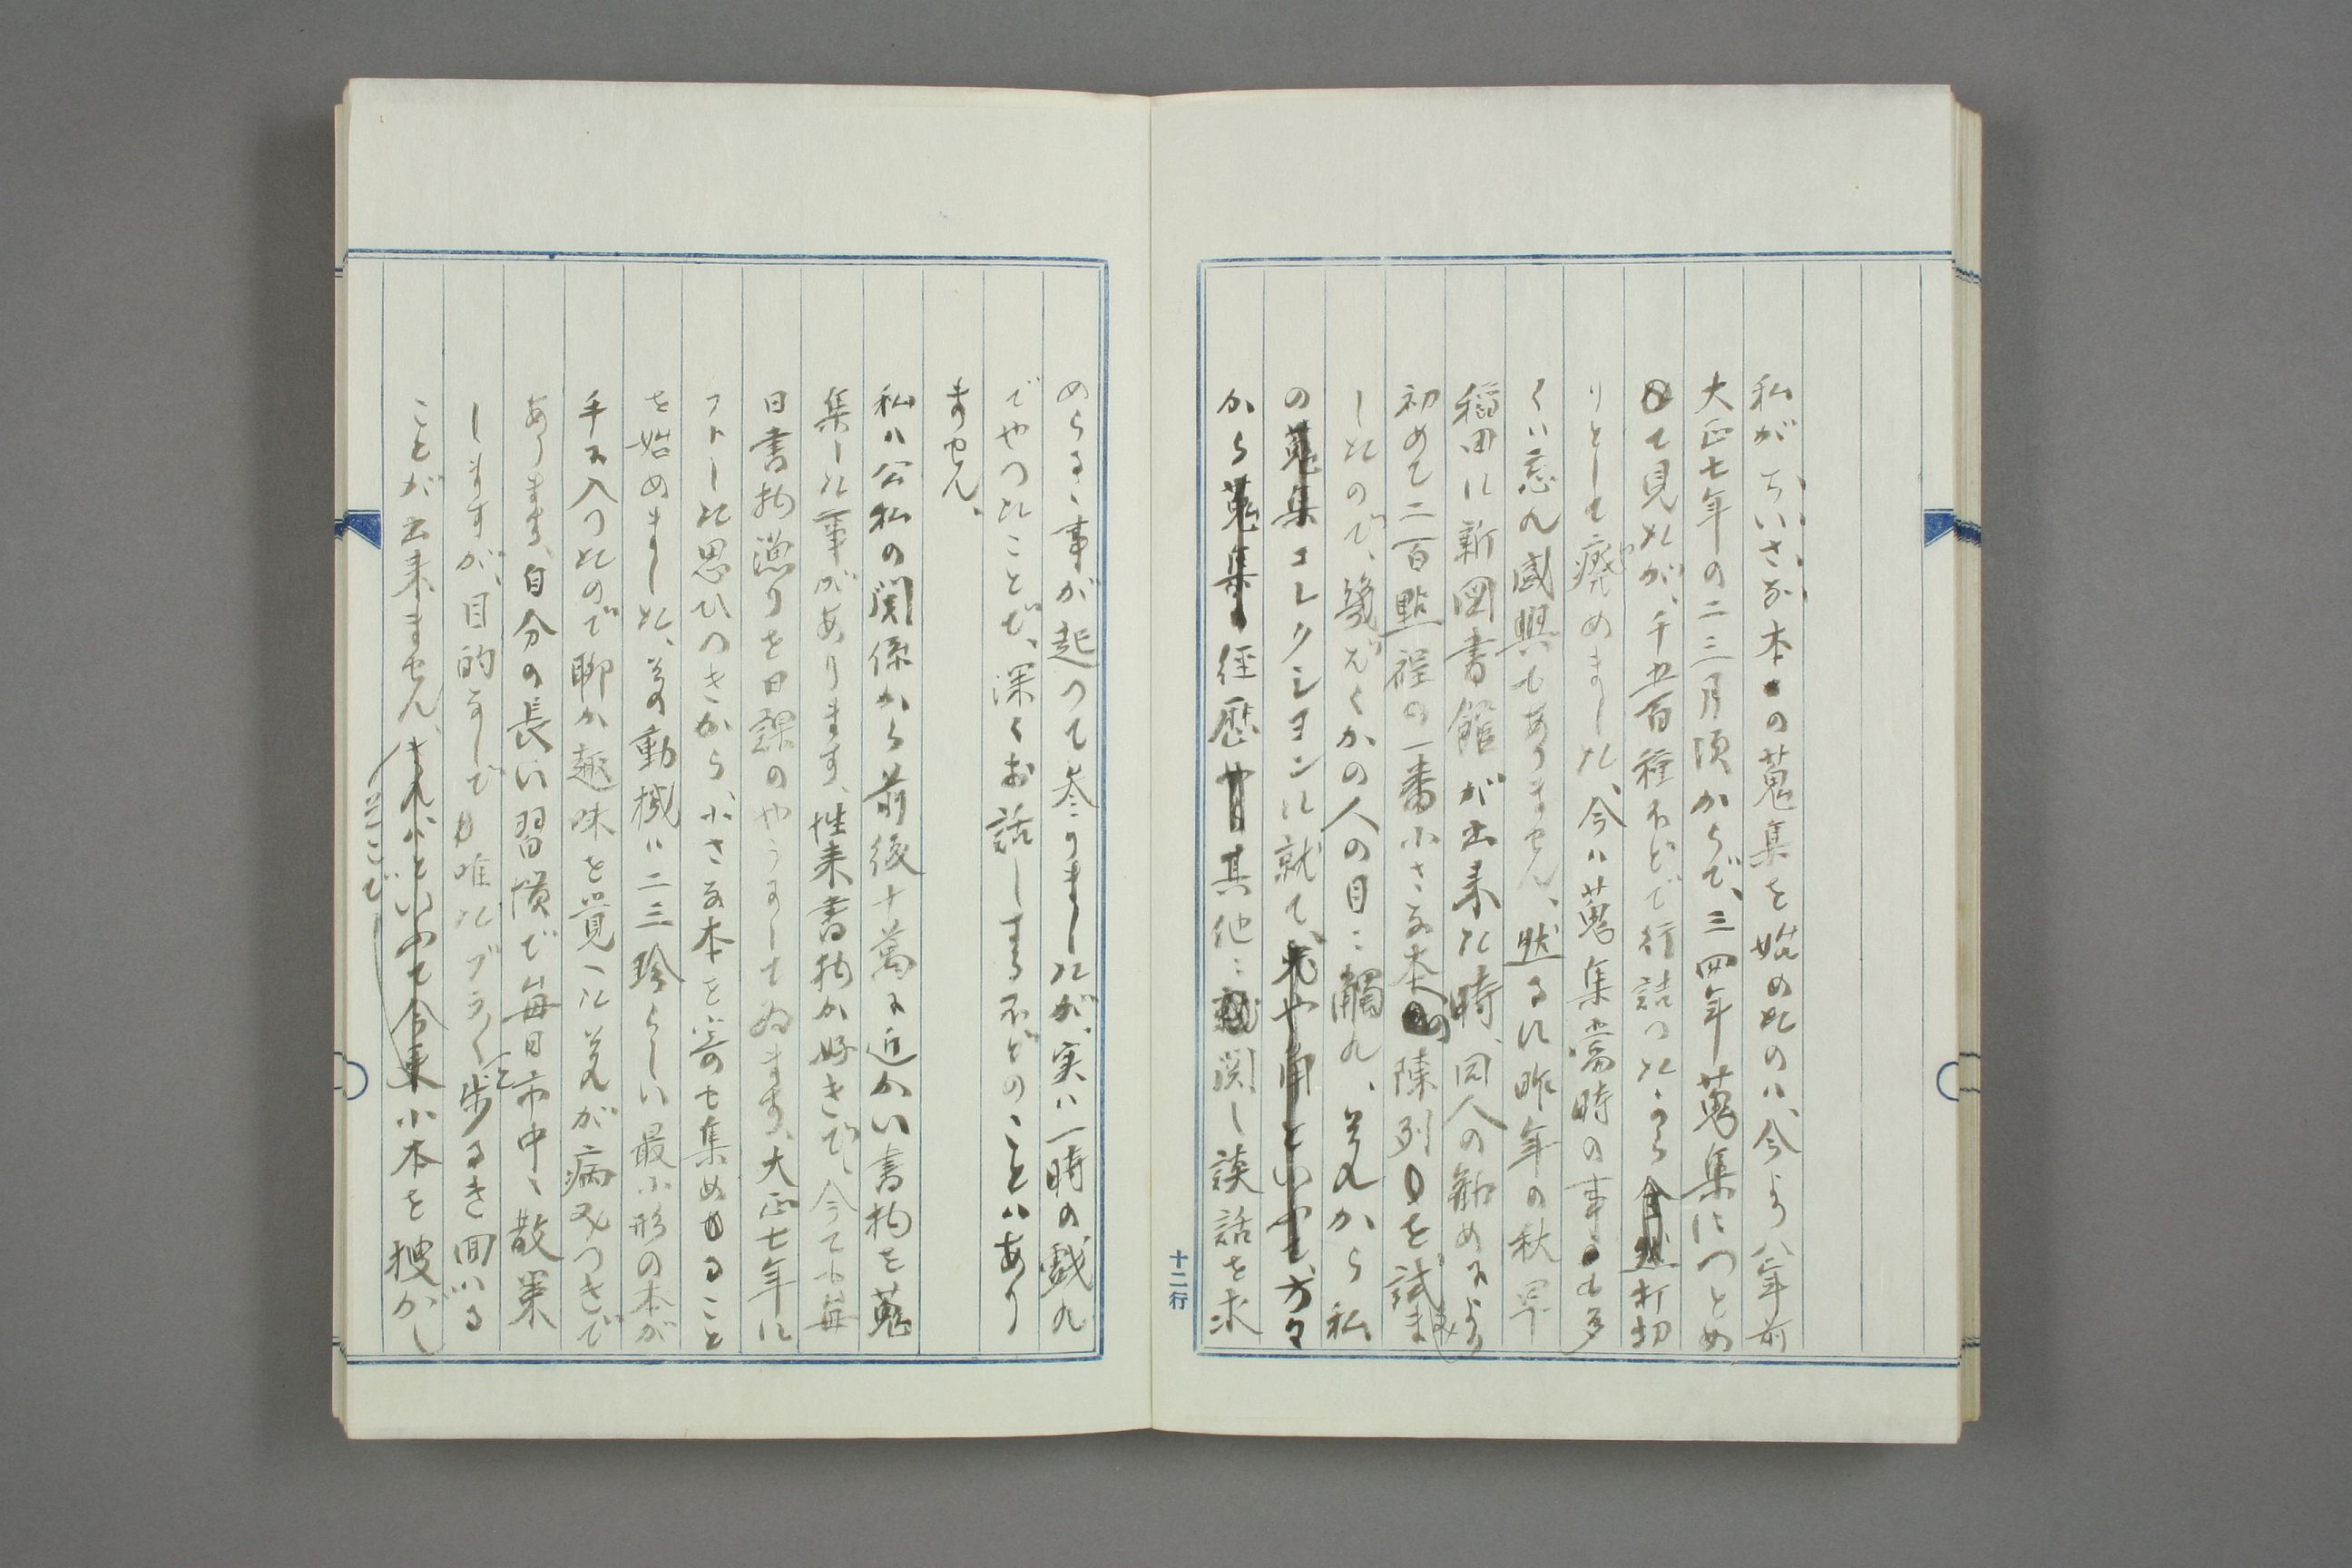 私がちいさな本の蒐集を始めたのハ、今より八年前
大正七年の二三月頃からで、三四年蒐集につとめ
て見たが、千五百種ほどで行詰つたから打切
りとして廃めました、今ハ蒐集當時の事も多
くハ忘れ感興もありません、然るに昨年の秋早
稲田に新図書館が出来た時、同人の勧めにより
初めて二百點程の一番小さな本の陳列を試ま
したので、幾ぶくかの人の目ニ觸れ、其れから私
の蒐集コレクシヨンに就て、方々
から蒐集経歴其他ニ関し談話を求
十二行
めらるゝ事が起つて参りましたが、実ハ一時の戯れ
でやつたことで、深くお話しする程のことハあり
ません、
私ハ公私の関係から前後十萬に近かい書物を蒐
集した事があります、性来書物が好きで、今でも毎
日書物漁りを日課のやうにしてゐます、大正七年に
フトした思ひつきから小さな本を寄せ集めること
を始めました、其動機ハ二三珍らしい最小形の本が
手に入つたので聊か趣味を覚へた其れが病みつきで
あります、自分の長い習慣で毎日市中を散策
しますが、目的なしで唯だブラ〱歩るき回はる
ことが出来ません、そこで小本を捜がし